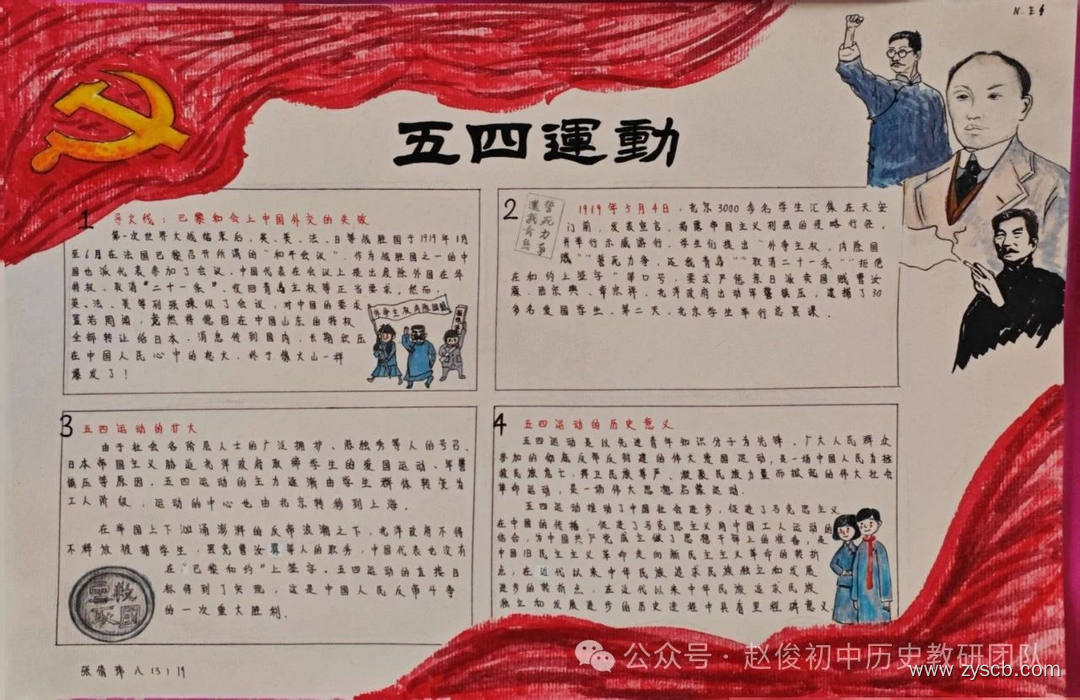 五四運動
1 导火线：巴黎和会上中国外交的失败
第一次世界大战结束后，英、美、法、日等战胜国于1919年1月
至6月在法国巴黎召开所谓的“和平会议”，作为战胜国之一的中
国也派代表参加了会议，中国代表在会议上提出废除外国在华
特权，取消“二十一条”，收回青岛主权等正当要求。然而，
英、法、美等列强操纵了会议，对中国的要求
置若罔闻，竟然将德国在中国山东的特权
全部转让给日本。消息传到国内，长期积压
在中国人民心中的怒火，终于像火山一样
爆发了！
外争主权内除国贼
2
誓死力争
還我青島
1919年5月4日，北京3000多名学生汇集在天安
门前，发表宣言，揭露帝国主义列强的侵略行径，
并举行示威游行。学生们提出“外争主权，内除国
贼”“誓死力争，还我青岛”“取消二十一条”“拒绝
在和约上签字”等口号，要求严惩亲日派卖国贼曹汝
霖、陆宗舆、章宗祥。北洋政府出动军警镇压，逮捕了30
多名爱国学生。第二天，北京学生举行总罢课。
3 五四运动的扩大
由于社会各阶层人士的广泛拥护、陈独秀等人的号召、
日本帝国主义胁迫北洋政府取缔学生的爱国运动、军警
镇压等原因，五四运动的主力逐渐由学生群体转变为
工人阶级，运动的中心也由北京转移到上海。
在举国上下汹涌澎湃的反帝浪潮之下，北洋政府不得
不释放被捕学生，罢免曹汝霖等人的职务，中国代表也没有
在“巴黎和约”上签字。五四运动的直接目
标得到了实现，这是中国人民反帝斗争
的一次重大胜利。
4 五四运动的历史意义
五四运动是以先进青年知识分子为先锋、广大人民群众
参加的彻底反帝反封建的伟大爱国运动，是一场中国人民为拯
救民族危亡、捍卫民族尊严、凝聚民族力量而掀起的伟大社会
革命运动，是一场伟大思想启蒙运动。
五四运动推动了中国社会进步，促进了马克思主义
在中国的传播，促进了马克思主义同中国工人运动的
结合，为中国共产党成立做了思想干部上的准备，是
中国旧民主主义革命走向新民主主义革命的转折
点，在近代以来中华民族追求民族独立和发展
进步的转折点，在近代以来中华民族追求民族
独立和发展进步的历史进程中具有里程碑意义
公众号·赵俊初中历史教研团队
www.zyscb.com